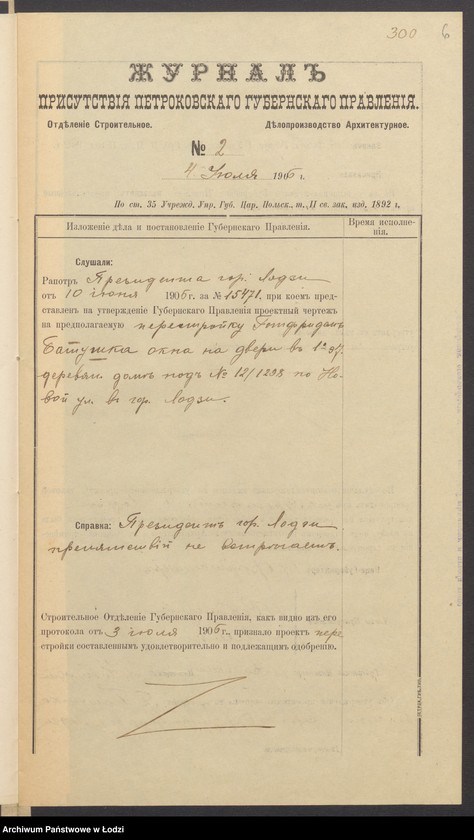 300 6
ЖУРНАЛЪ
ПРИСУТСТВІЯ ПЕТРОКОВСКАГО ГУБЕРНСКАГО ПРАВЛЕНІЯ.
Отдѣленіе Строительное. Дѣлопроизводство Архитектурное.
№ 2
4 Июля 1906 г.
По ст. 35 Учрежд. Упр. Губ. Цар. Польск., т. II св. зак. изд. 1892 г.
Изложеніе дѣла и постановленіе Губернскаго Правленія. Время исполне-
нія.
Слушали:
Рапортъ Президента гор. Лодзи
отъ 10 іюня 1906 г. за № 15471, при коемъ пред-
ставленъ на утвержденіе Губернскаго Правленія проектный чертежъ
на предполагаемую перестройку Готфридомъ
окна на двери въ 1 эт.
деревян. домѣ подъ № 12/1298 по Но-
вой ул. въ гор. Лодзи.
Справка: Президентъ гор. Лодзи
препятствій не встрѣчаетъ.
Строительное Отдѣленіе Губернскаго Правленія, какъ видно изъ его
протокола отъ 3 іюля 1906 г., признало проектъ пере-
стройки составленнымъ удовлетворительно и подлежащимъ одобренію.
Archiwum Państwowe w Łodzi